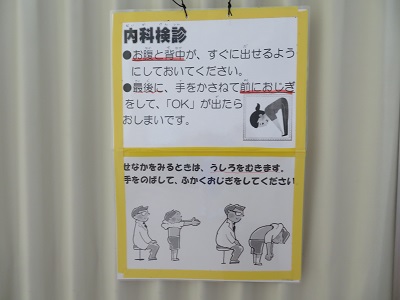 内科検診
●お腹と背中が、すぐに出せるよう
にしておいてください。
●最後に、手をかさねて前におじぎ
をして、「OK」が出たら
おしまいです。
せなかをみるときは、うしろをむきます。
手をのばして、ふかくおじぎをしてください